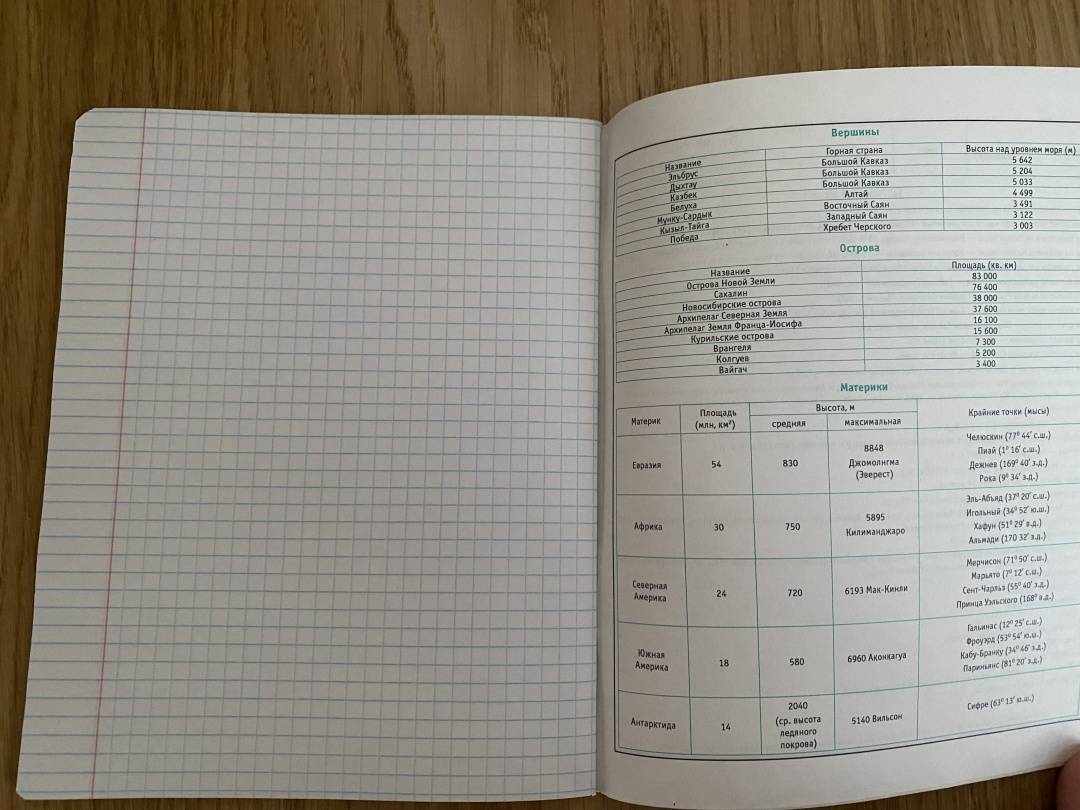 Вершины
Название Горная страна Высота над уровнем моря (м)
Эльбрус Большой Кавказ 5 642
Дыхтау Большой Кавказ 5 204
Казбек Большой Кавказ 5 033
Белуха Алтай 4 499
Мунку-Сардык Восточный Саян 3 491
Кызыл-Тайга Западный Саян 3 122
Победа Хребет Черского 3 003
Острова
Название Площадь (кв. км)
Острова Новой Земли 83 000
Сахалин 76 400
Новосибирские острова 38 000
Архипелаг Северная Земля 37 600
Архипелаг Земля Франца-Иосифа 16 100
Курильские острова 15 600
Врангеля 7 300
Колгуев 5 200
Вайгач 3 400
Материки
Материк Площадь (млн, км²) Высота, м Крайние точки (мысы)
средняя максимальная
Евразия 54 830 8848 Джомолнгма (Эверест)
Челюскин (77⁰ 44′ с.ш.)
Пиай (1⁰ 16′ с.ш.)
Дежнев (169⁰ 40′ з.д.)
Рока (9⁰ 34′ з.д.)
Африка 30 750 5895 Килиманджаро
Эль-Абъяд (37⁰ 20′ с.ш.)
Игольный (34⁰ 52′ ю.ш.)
Хафун (51⁰ 29′ в.д.)
Альмади (170 32′ з.д.)
Северная Америка 24 720 6193 Мак-Кинли
Мерчисон (71⁰ 50′ с.ш.)
Марьято (7⁰ 12′ с.ш.)
Сент-Чарльз (55⁰ 40′ з.д.)
Принца Уэльского (168⁰ в.д.)
Южная Америка 18 580 6960 Аконкагуа
Гальинас (12⁰ 25′ с.ш.)
Фроуэрд (53⁰ 54′ ю.ш.)
Кабу-Бранку (34⁰ 46′ з.д.)
Париньянс (81⁰ 20′ з.д.)
Антарктида 14 2040 (ср. высота ледяного покрова) 5140 Вильсон
Сифре (63⁰ 13′ ю.ш.)